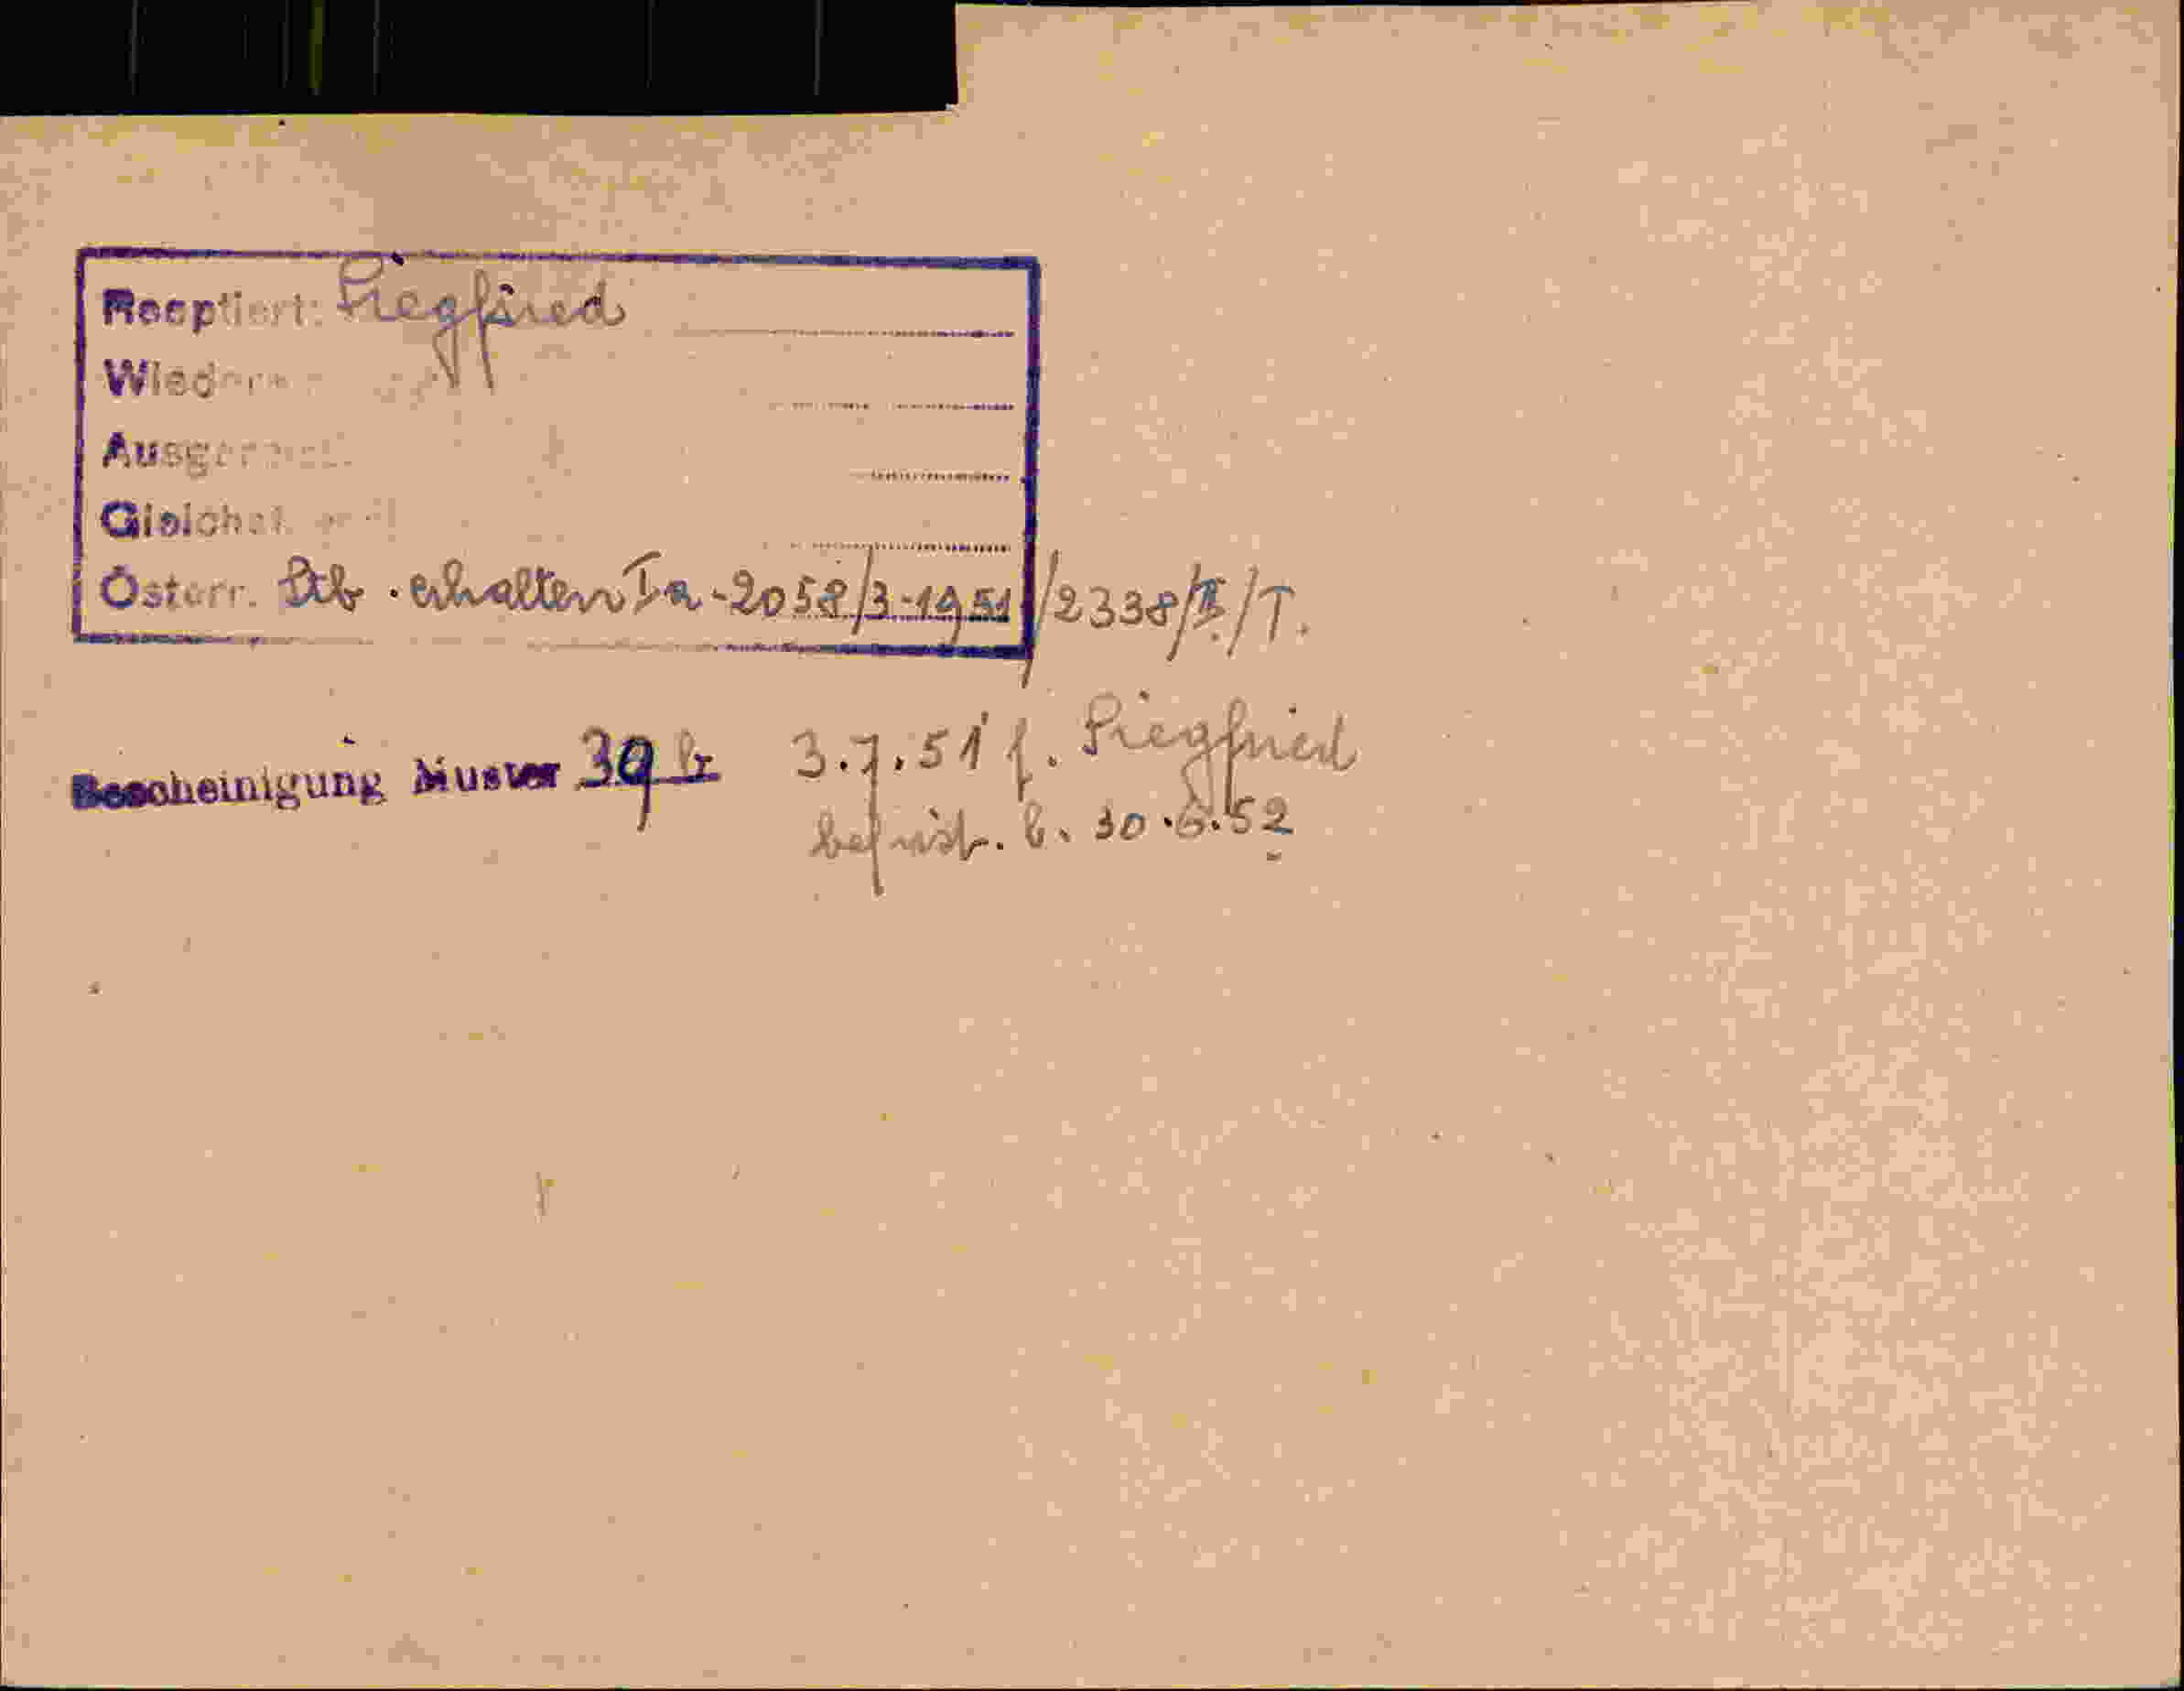 Reoptiert: Siegfried
Österr. Stb. erhalten Ia-2058/3-1951/2338/II/T.
Bescheinigung Muster 39 b 3.7.51 f. Siegfried
befrist. b. 30.6.52